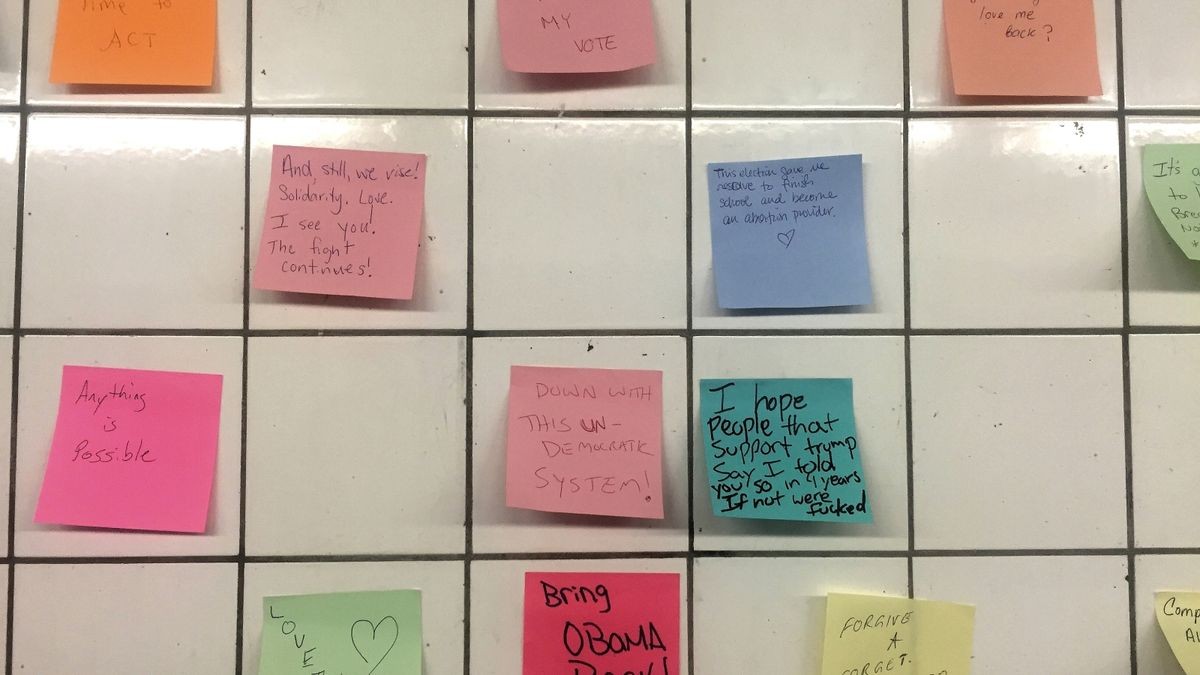 Time to
ACT
MY
VOTE
love me
Back?
And still, we rise!
Solidarity. Love.
I see you!
The fight
continues!
This election gave me
resolve to finish
school and become
an abortion provider.
♡
It's a
to b
Brea
No
Anything
is
Possible
DOWN WITH
THIS UN-
DEMOCRATIC
SYSTEM!
I hope
people that
support trump
Say I told
you so in 4 years
If not were
fucked
LOVE
♡
Bring
OBAMA
Back!
FORGIVE
&
FORGET.
Comp